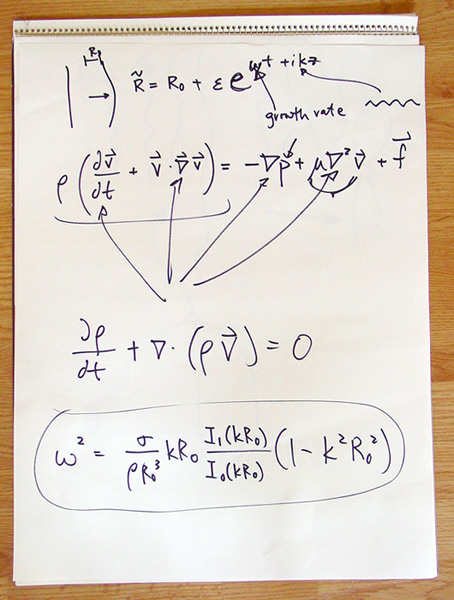 R₀
R̃ = R₀ + ε e^{ωt + ikz}
growth rate
ρ (∂v⃗/∂t + v⃗ · ∇⃗ v⃗) = −∇p + μ∇²v⃗ + f⃗
∂ρ/∂t + ∇ · (ρ v⃗) = 0
ω² = σ/(ρR₀³) kR₀ I₁(kR₀)/I₀(kR₀) (1 − k²R₀²)